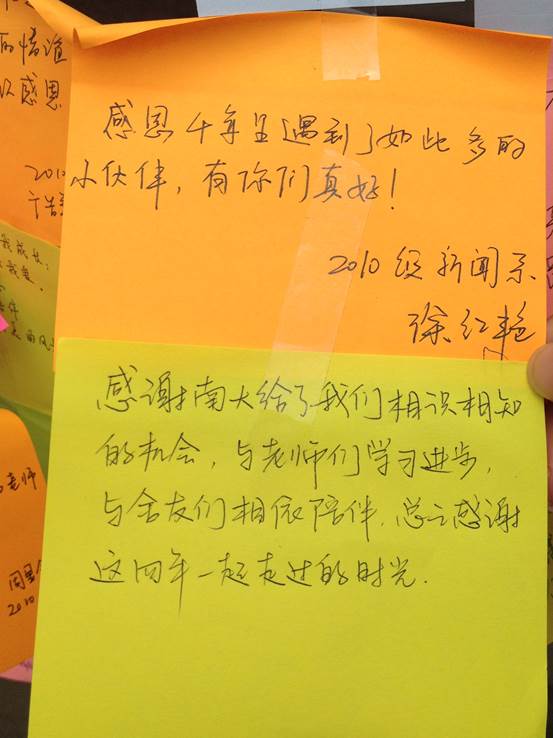 感恩千年里遇到了如此多的
小伙伴，有你们真好！
2010级新闻系
徐红艳
感谢南大给了我们相识相知
的机会，与老师们学习进步，
与舍友们相依陪伴，总之感谢
这四年一起走过的时光.
的情谊
以感恩
2010
老师
2010